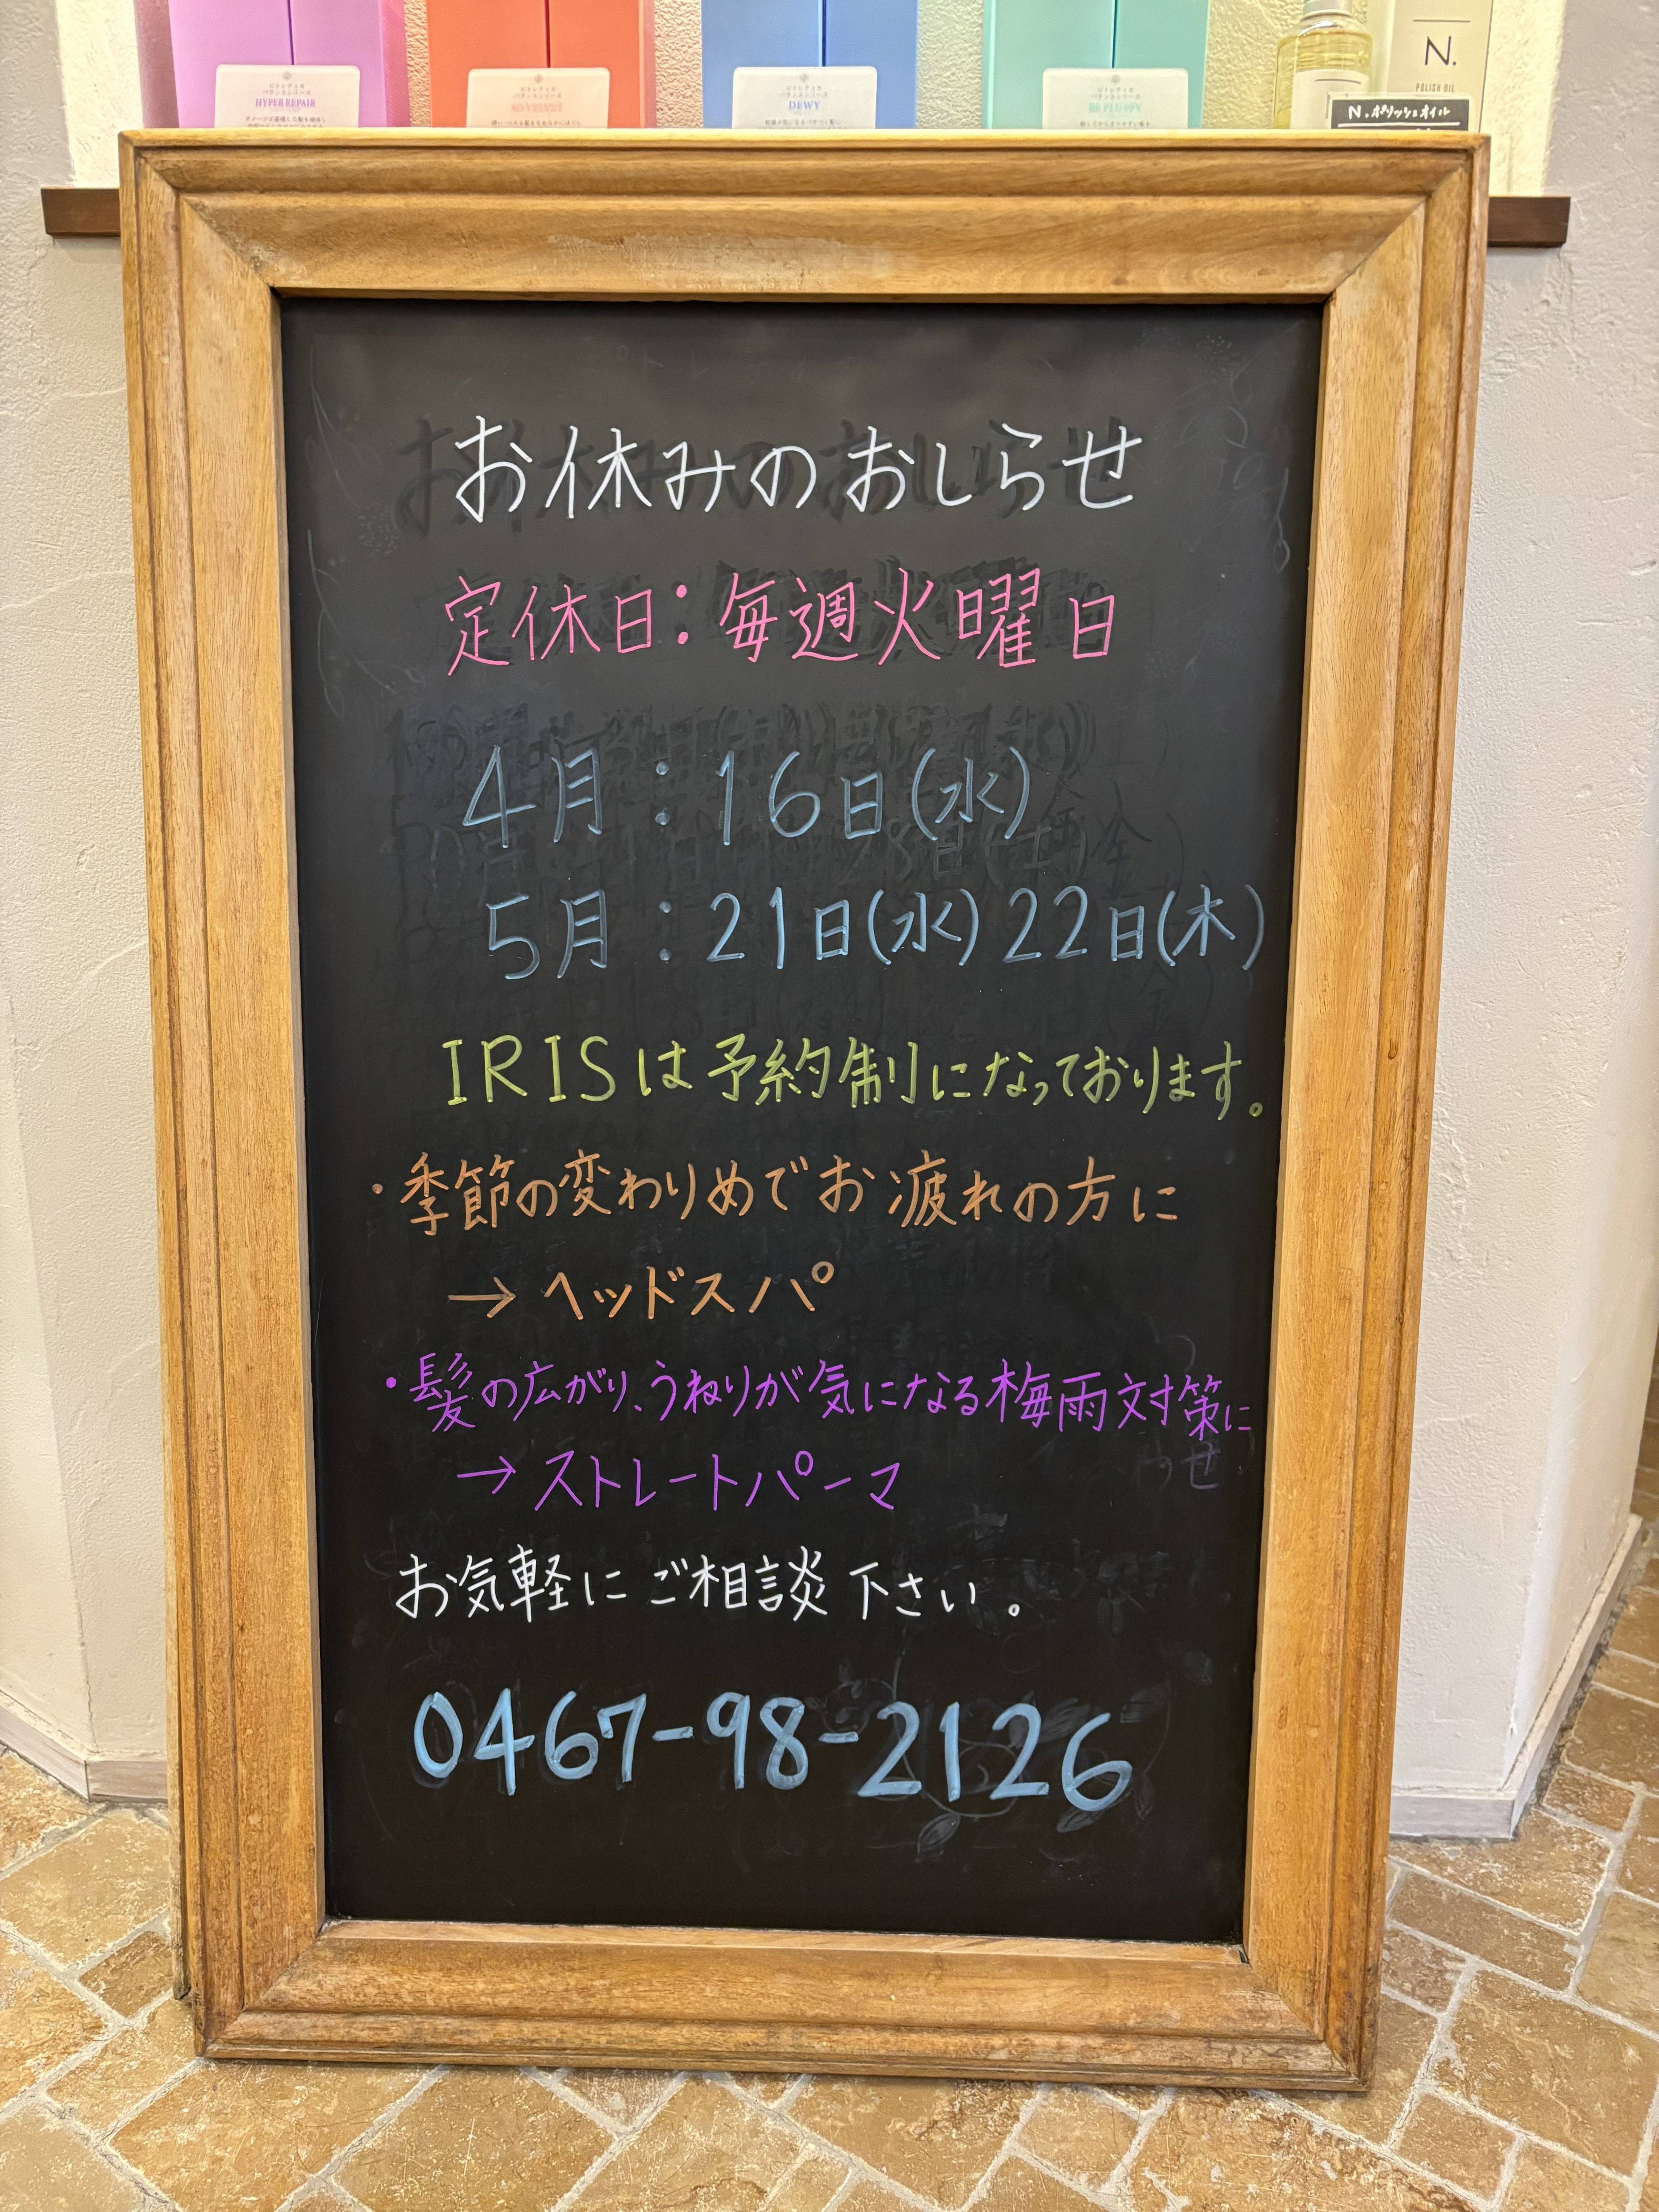 HYPER REPAIR
DEWY
N.
POLISH OIL
N.ポリッシュオイル
お休みのおしらせ
定休日：毎週火曜日
4月：16日(水)
5月：21日(水)22日(木)
IRISは予約制になっております。
・季節の変わりめでお疲れの方に
→ ヘッドスパ
・髪の広がり、うねりが気になる梅雨対策に
→ ストレートパーマ
お気軽にご相談下さい。
0467-98-2126